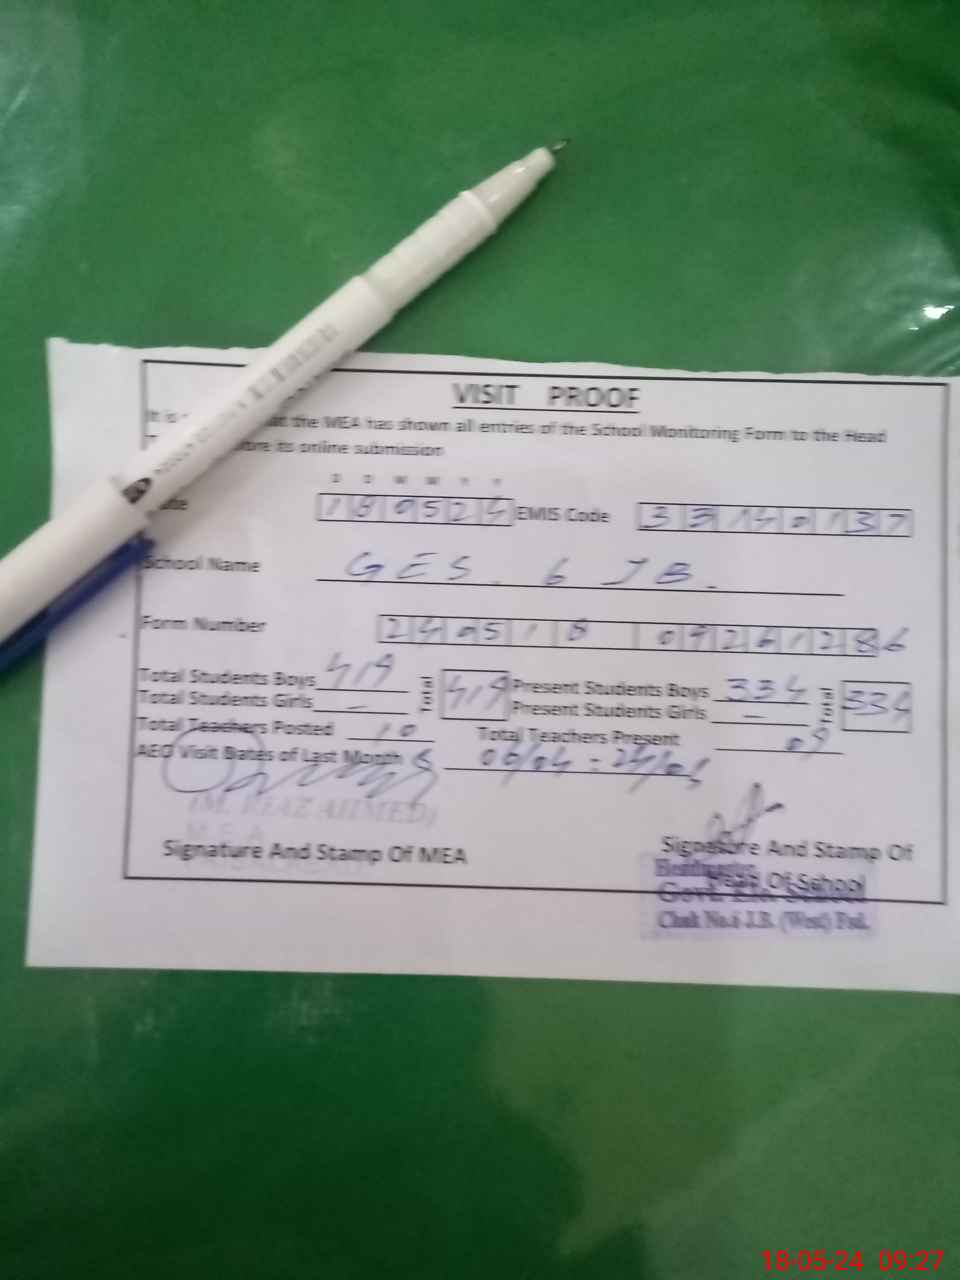 VISIT PROOF
It is the MEA has shown all entries of the School Monitoring Form to the Head
its online submission
D D M M Y Y
180524 EMIS Code 33140137
School Name GES. 6 JB.
Form Number 240518 092612886
Total Students Boys 419 419 Present Students Boys 334 334
Total Students Girls - Present Students Girls -
Total Teachers Posted 10 Total Teachers Present 09
AEO Visit Dates of Last Month 06/04
(M. RIAZ AHMED)
M.E.A
Signature And Stamp Of MEA
Signature And Stamp Of
Head Of School
Headmaster
Govt. Ele. School
Chak No.6 J.B. (West) Fsd.
18-05-24 09:27